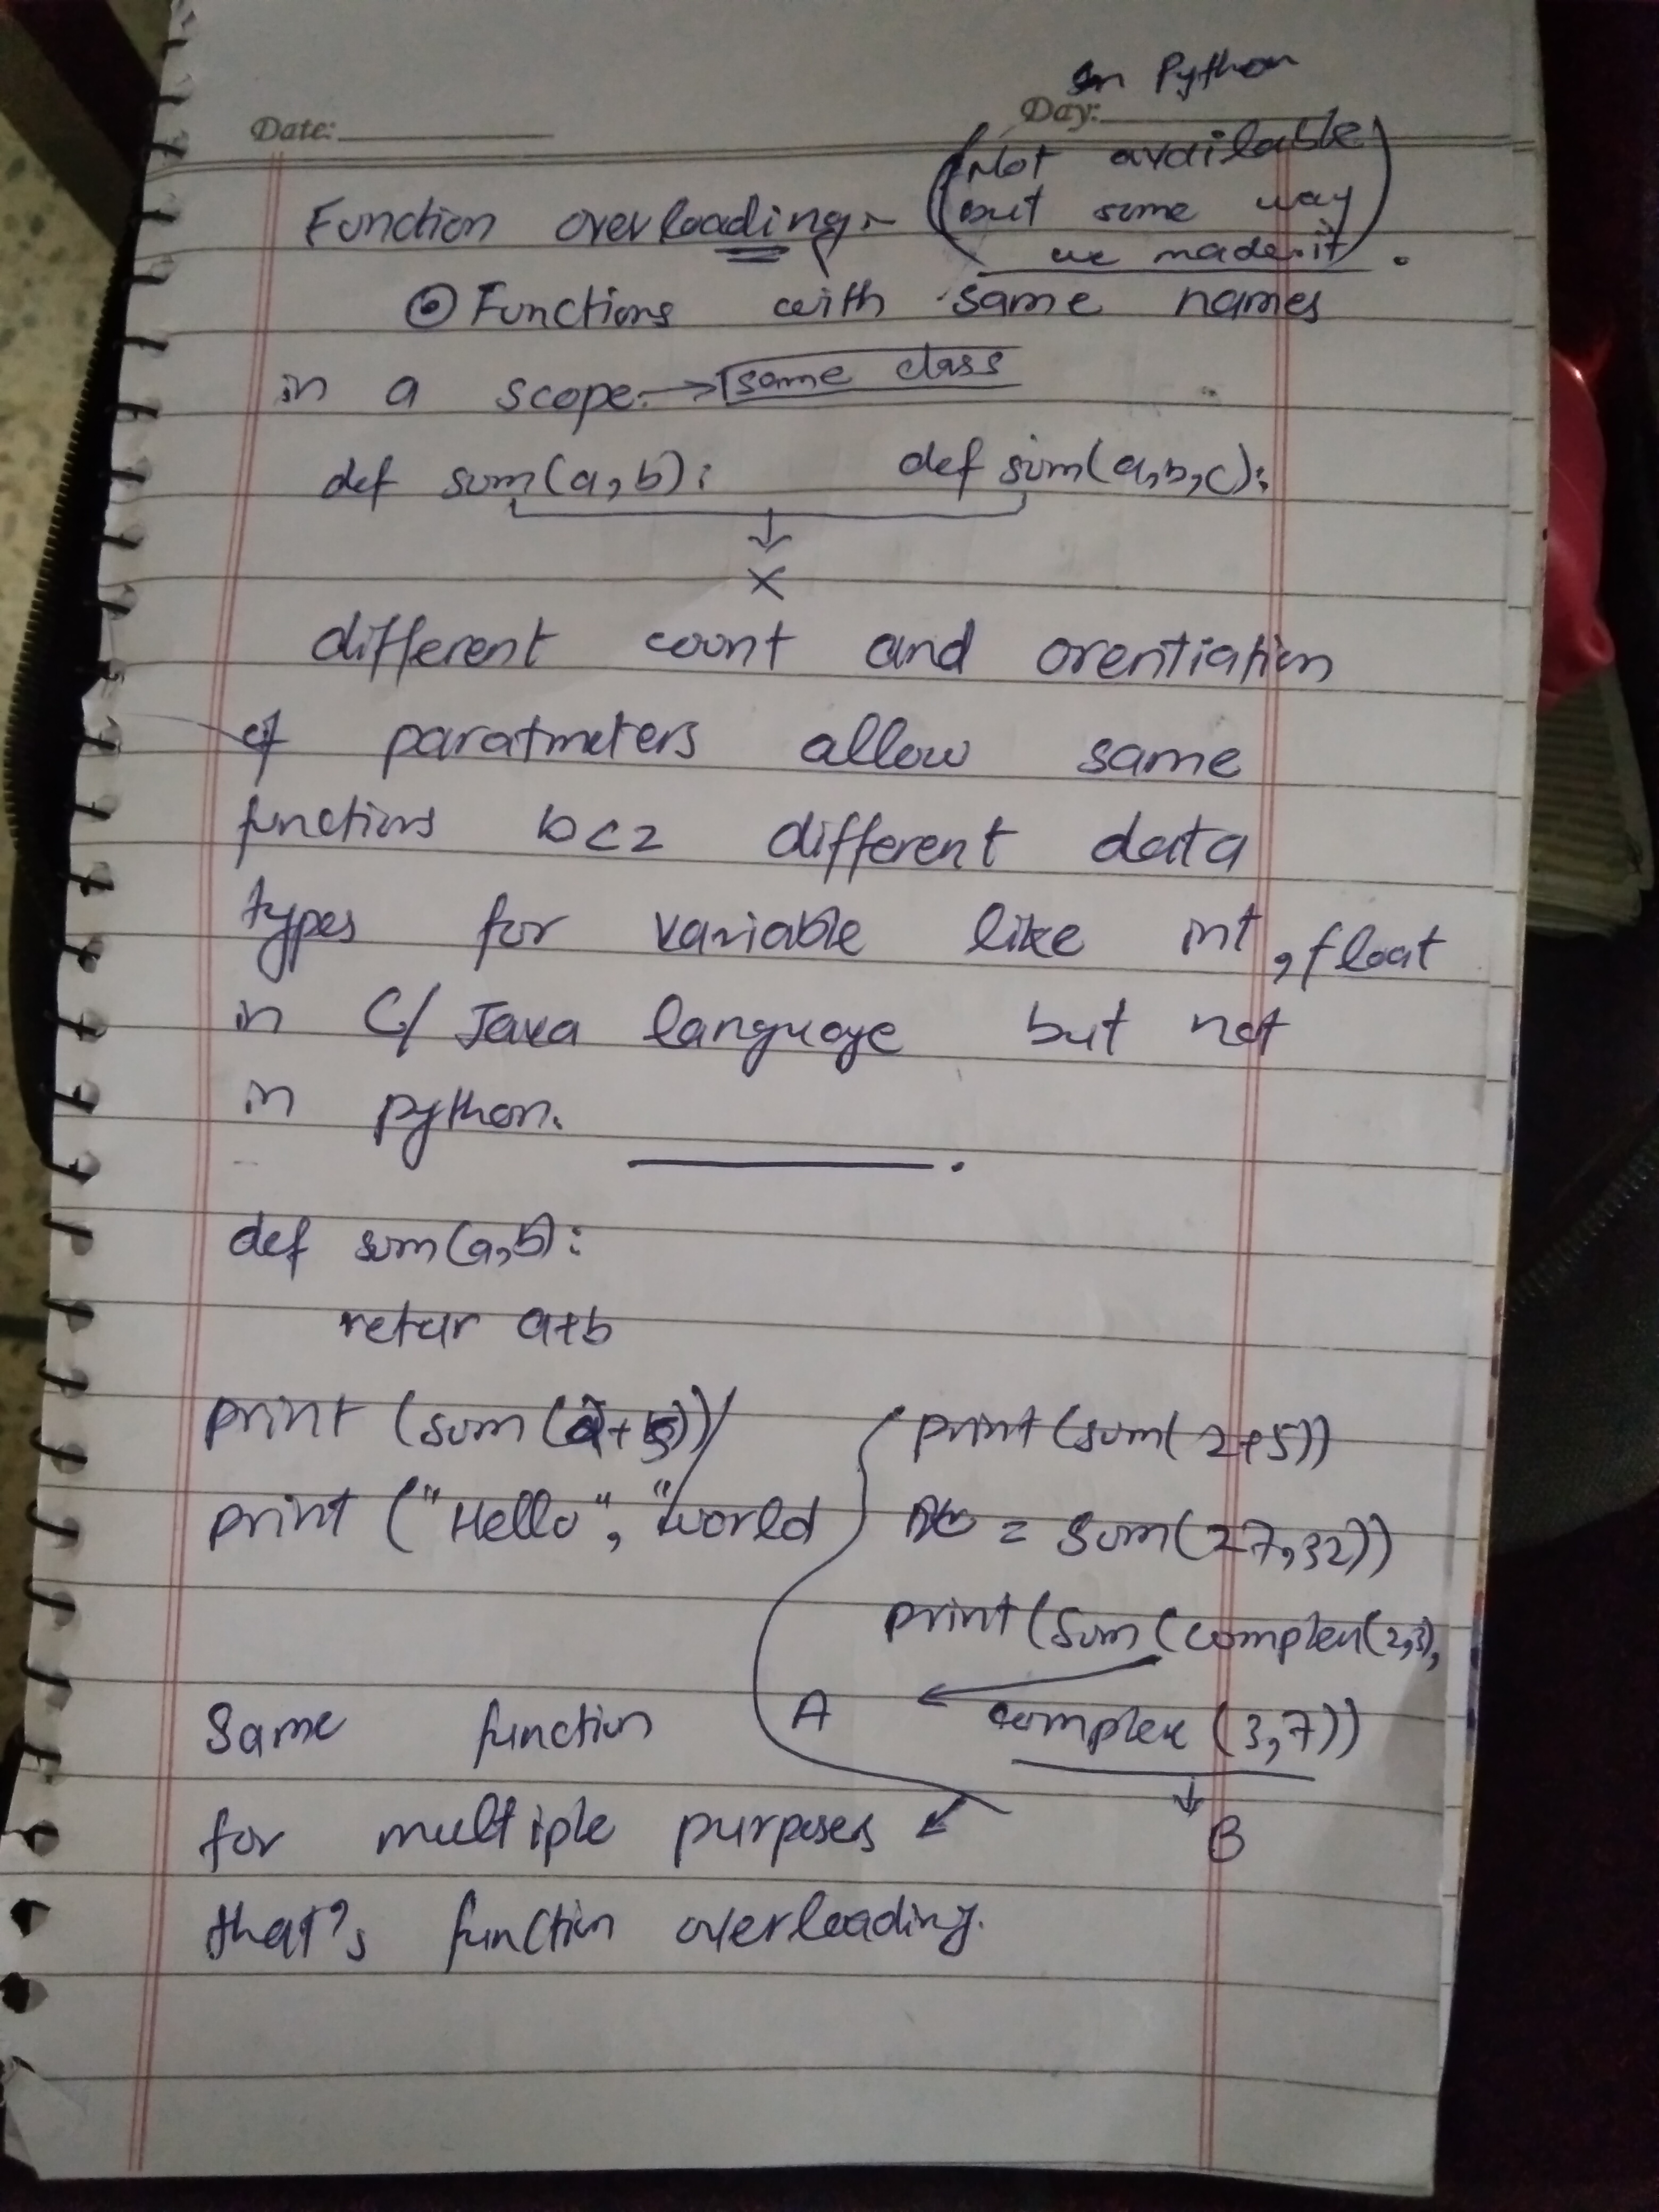 In Python
Date:
Day:
(Not available
but some way
we made it).
Function overloading:-
⊙ Functions with same names
in a scope. → same class
def sum(a,b): def sum(a,b,c):
↓
×
different count and orentiation
of paratmeters allow same
functions bcz different data
types for variable like int, float
in C/ Java language but not
in python.
def sum(a,b):
retur a+b
print (sum(a+b))
print ("Hello", "world
print(sum(2+5))
= Sum(27,32))
print(Sum(complex(2,3),
A complex (3,7))
B
Same function
for multiple purposes
that's function overloading.